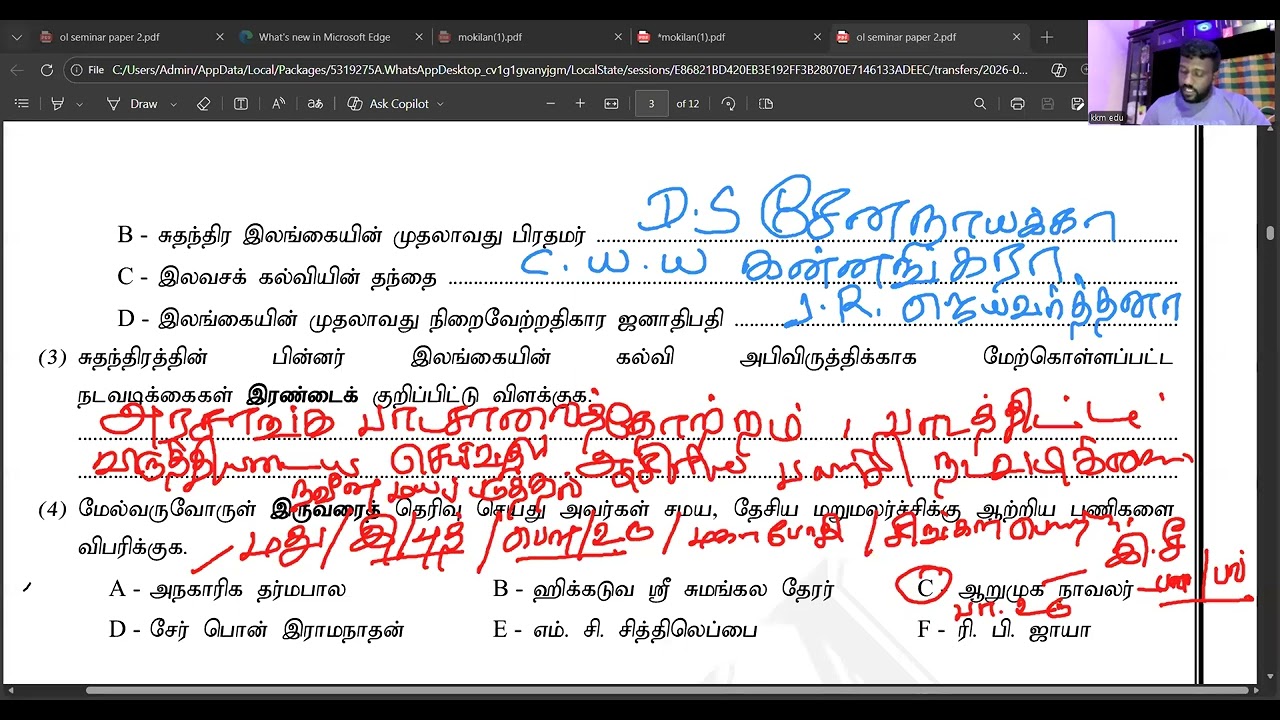 ol seminar paper 2.pdf What's new in Microsoft Edge mokilan(1).pdf *mokilan(1).pdf ol seminar paper 2.pdf
File C:/Users/Admin/AppData/Local/Packages/5319275A.WhatsAppDesktop_cv1g1gvanyjgm/LocalState/sessions/E86821BD420EB3E192FF3B28070E7146133ADEEC/transfers/2026-0...
Draw Ask Copilot 3 of 12
kkm edu
B - சுதந்திர இலங்கையின் முதலாவது பிரதமர் D.S சேனநாயக்கா
C - இலவசக் கல்வியின் தந்தை C.W.W கன்னங்கரா
D - இலங்கையின் முதலாவது நிறைவேற்றதிகார ஜனாதிபதி J.R. ஜெயவர்த்தனா
(3) சுதந்திரத்தின் பின்னர் இலங்கையின் கல்வி அபிவிருத்திக்காக மேற்கொள்ளப்பட்ட
நடவடிக்கைகள் இரண்டைக் குறிப்பிட்டு விளக்குக.
அரசாங்க பாடசாலைத்தோற்றம், பாடத்திட்டம்
செய்வது ஆசிரிய பயிற்சி
(4) மேல்வருவோருள் இருவரைத் தெரிவு செய்து அவர்கள் சமய, தேசிய மறுமலர்ச்சிக்கு ஆற்றிய பணிகளை
விபரிக்குக.
மது/இ/புத்
இ.சீ
A - அநகாரிக தர்மபால B - ஹிக்கடுவ ஸ்ரீ சுமங்கல தேரர் C - ஆறுமுக நாவலர்
D - சேர் பொன் இராமநாதன் E - எம். சி. சித்திலெப்பை F - ரி. பி. ஜாயா